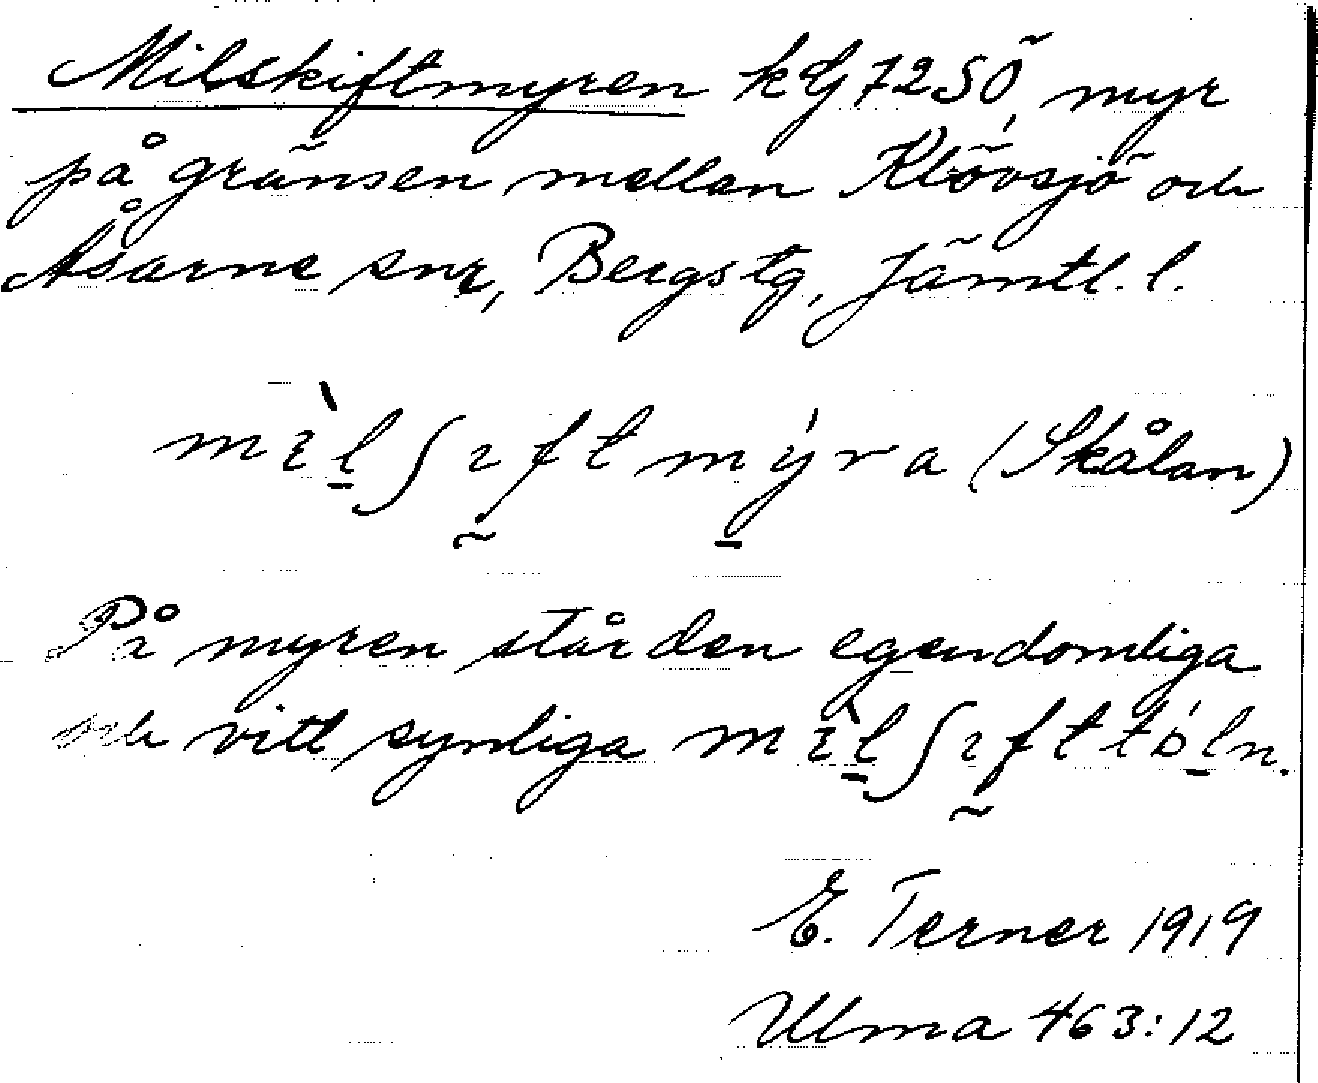 Milskiftmyren kg 72 SÖ, myr
på gränsen mellan Klövsjö och
Åsarne snr, Bergs tg, Jämtl. l.
mɪ̀l̠ʃɪftmýra (Skålan)
På myren står den egendomliga
och vitt synliga mɪ̀l̠ʃɪfttól̠n.
E. Terner 1919
Ulma 463:12